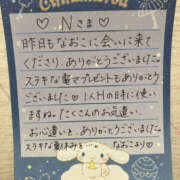 ♡Nさま♡
昨日もなおこに会いに来て
くださり ありがとうございました♡
ステキな電マプレゼントもありがとう
ございました♡1人Hの時に使い
ますね♪たくさんのお気遣い、
お心遣いと、ありがとうございました♡
ステキな夏休みを♡ なおこより♡